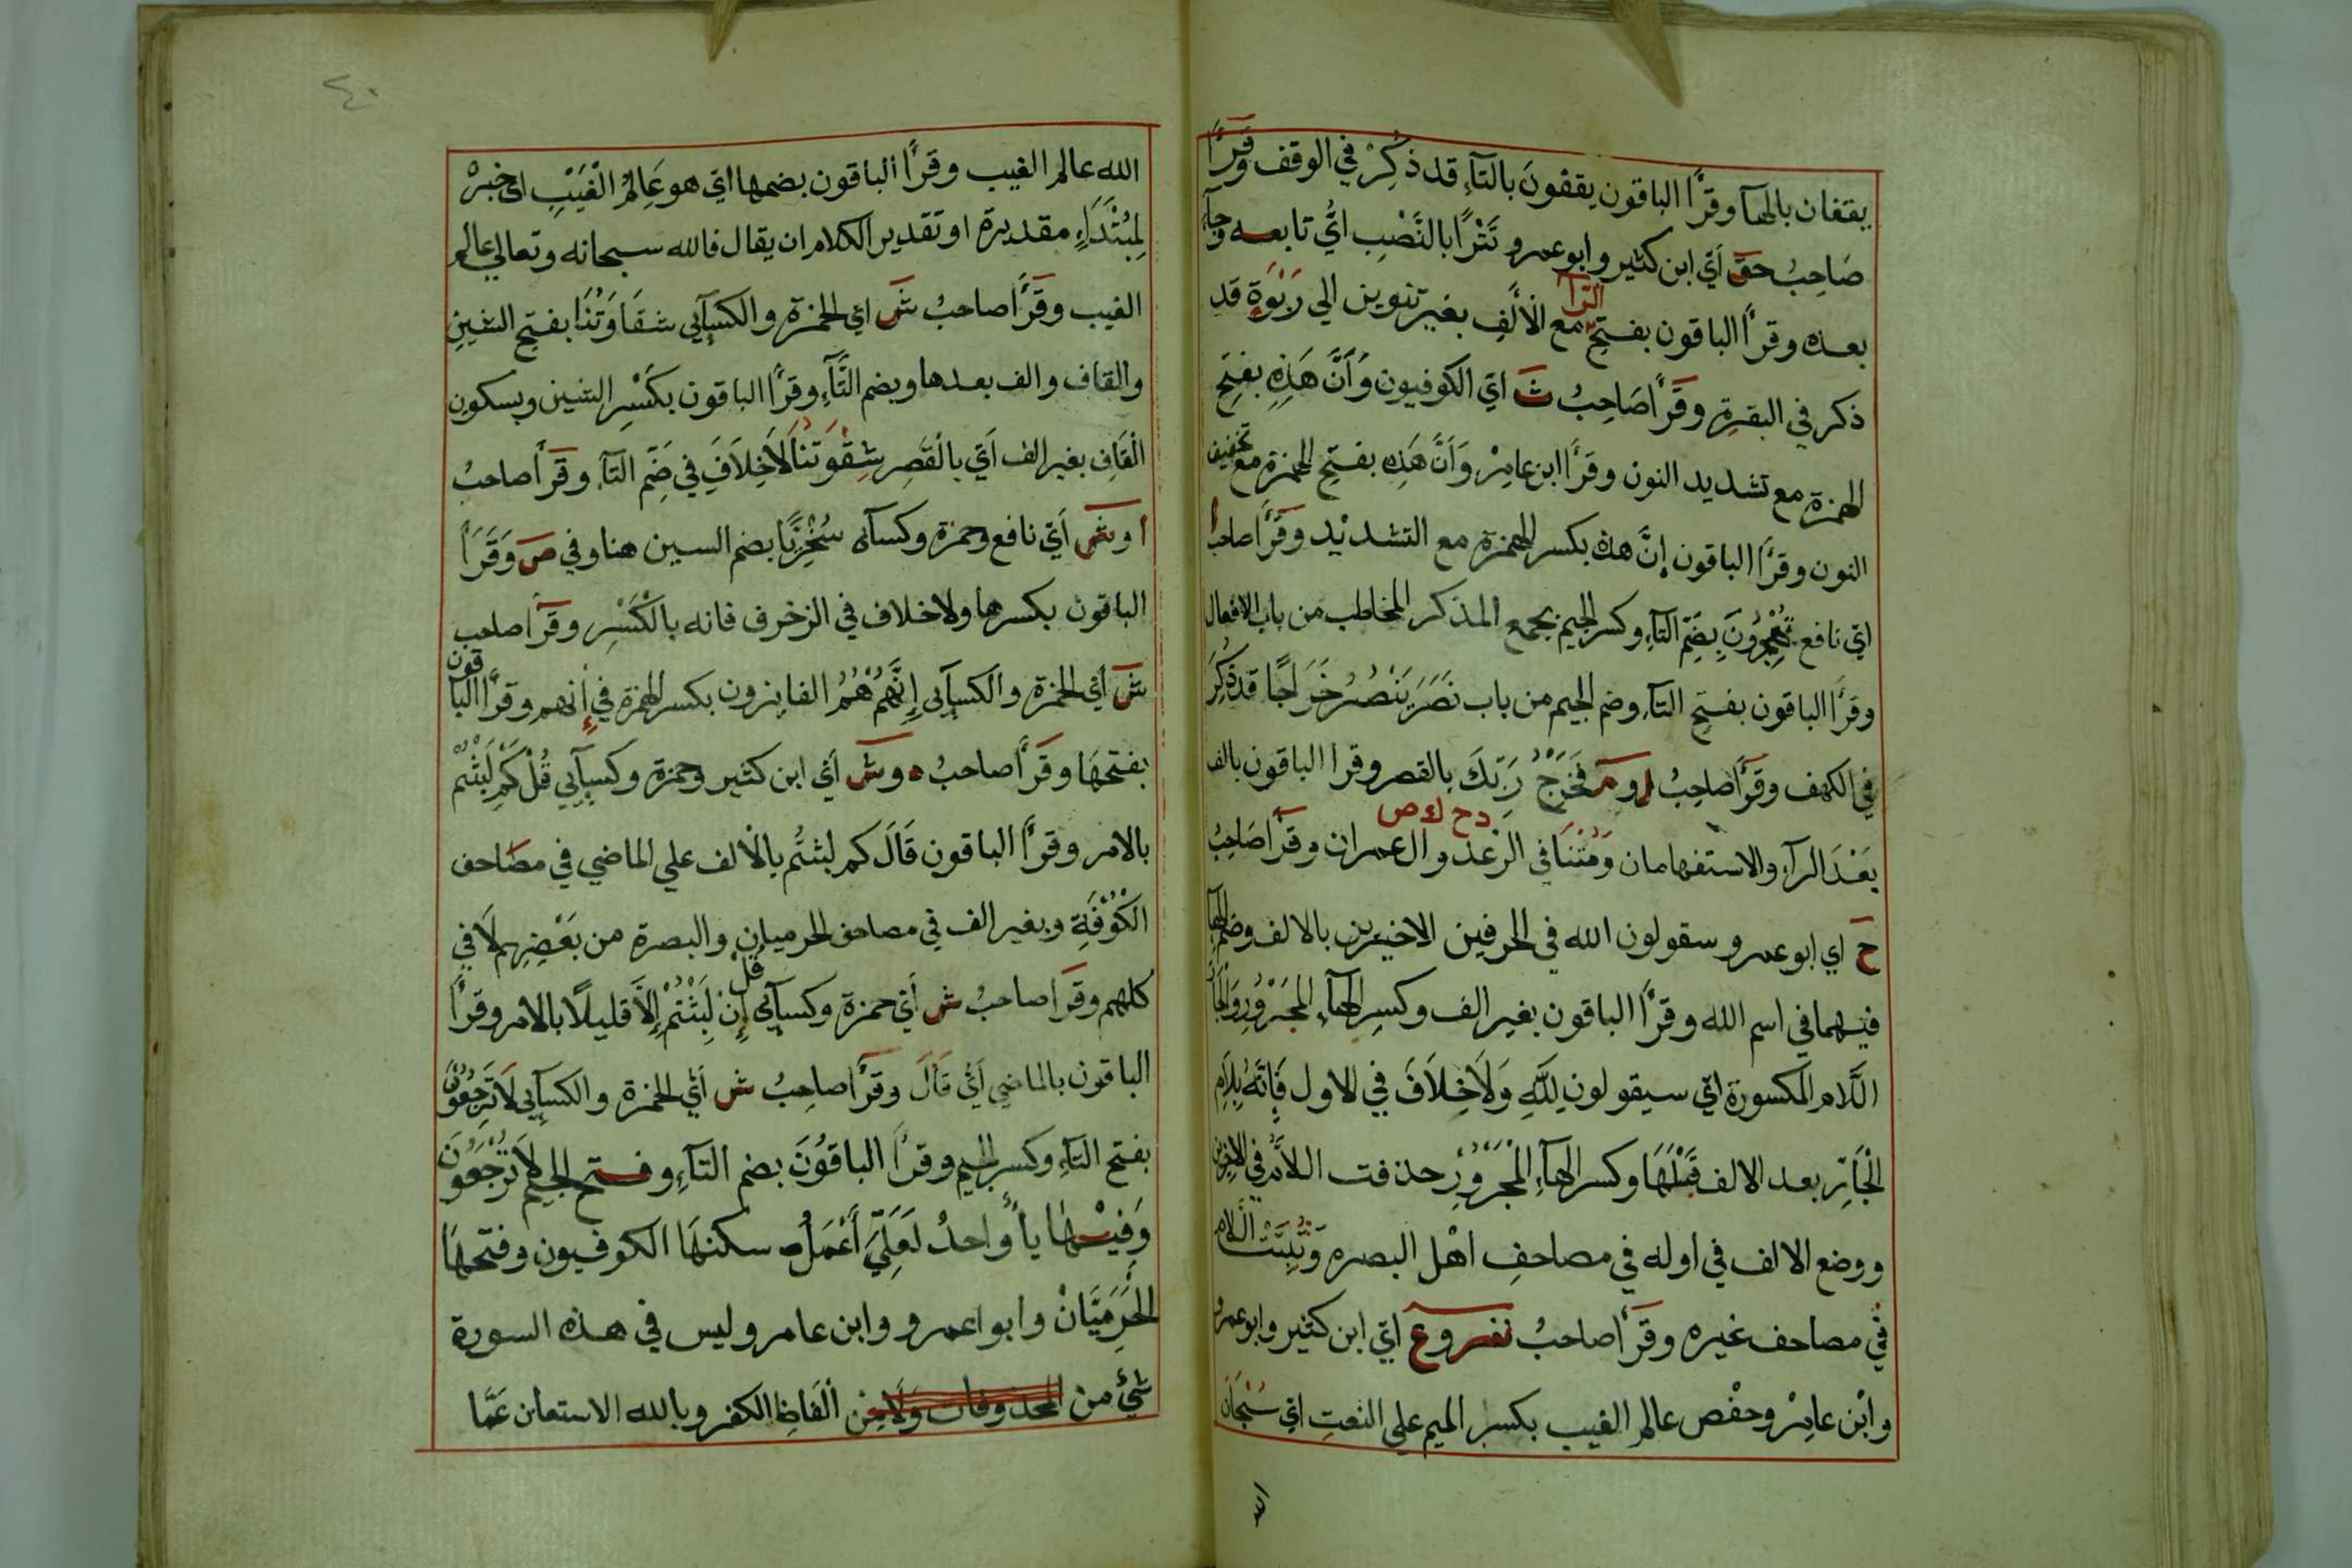 يقفان بالهآ وقرأ الباقون يقفون بالتآء قد ذكر في الوقف وقرأ
صاحبُ حق أي ابن كثير وابو عمرو تترًا بالنصب ايّ تابعه وجآء
بعده وقرأ الباقون بفتح الترا مع الألف بغير تنوين الي ربوة قد
ذكر في البقرة وقرأ صاحبُ ث اي الكوفيون وأنَّ هذه بفتح
الهمزة مع تشديد النون وقرأ ابن عامر وأنَّ هذه بفتح الهمزة مع تخفيف
النون وقرأ الباقون إنَّ هذه بكسر الهمزة مع التشديد وقرأ صاحبُ ا
اي نافع تُهجِرُونَ بضم التآء وكسر الجيم بجمع المذكر المخاطب من باب الافعال
وقرأ الباقون بفتح التآء وضم الجيم من باب نَصَرَ يَنْصُرُ خَرَاجًا قد ذُكِرَ
في الكهف وقرأ صاحبُ فخرجُ ربِّكَ بالقصر وقرا الباقون بالف
بَعْدَ الرآء والاستفهامان ومُتْنَا في الرعد وال عمران وقرأ صاحبُ
دح ك ص
حَ اي ابو عمرو سقولون الله في الحرفين الاخيرين بالالف وضم الهآ
فيهما في اسم الله وقرأ الباقون بغير الف وكسر الهآء المجرور والجآ
اللَّام المكسورة اي سيقولون لِلَّهِ وَلَا خِلَافَ في الاول فانَّهُ بِلَام
الْجَارِّ بعد الالف قَبْلَهَا وكسر الهآءِ الْمَجْرُورِ حذفت اللَّام في الاخرين
ووضع الالف في اوله في مصاحف اهل البصره وثُبِتَت اللام
في مصاحف غيره وقرأ صاحبُ نفر وع اي ابن كثير وابو عمرو
وابْن عامِرْ وحفْص عالم الغيب بكسر الميم علي النعتِ اي سُبْحَانَ
الله
٤٠
الله عالم الغيب وقرأ الباقون بضمها اي هو عَالِمُ الْغَيْبِ اي خبرْ
لِمُبْتَدَاءٍ مقديرة او تقدير الكلام ان يقال فالله سبحانه وتعالي عالم
الغيب وقرأ صاحبُ شَ اي الحمزة والكسآيي شقَاوَتُنَا بفتح الشين
والقاف والف بعدها وبضم التَّآءِ وقرأ الباقون بكَسْرِ الشين وبسكون
الْقَافِ بغير الف أي بالْقَصْرِ شِقْوَتُنَا لَاخِلَافَ في ضَمِّ التآء وقرأ صاحبُ
ا وشَ أي نافع وحمزة وكسآئي سُخْرِيًّا بضم السين هنا وفي صَ وَقَرَأَ
الباقون بكسرها ولا خلاف في الزخرف فانه بالْكَسْرِ وقرأ صاحب
شَ أي الحمزة والكسآيي إِنَّهُمْ هُمُ الفايزون بكسر الهمزة في إنهم وقرأ الباقون
بفتحهَا وقرأ صاحبُ د وش أي ابن كثير وحمزة وكسآيي قُلْ كَمْ لَبِثْتُمْ
بالامر وقرأ الباقون قَالَ كم لبثتُم بالْالف علي الماضي في مصاحف
الكُوْفَةِ وبغير الف في مصاحف الحرميان والبصرة من بَعْضِهِم لَا في
كلهم وقرَأ صاحبُ ش أي حمزة وكسآيي قُلْ إِنْ لَبِثْتُمْ إِلَّا قليلًا بالامر وقرأ
الباقون بالماضي أي قَالَ وقرأ صاحِبُ ش أي الحمزة والكسآيي لَا تَرْجِعُوْنَ
بفتح التآء وكسر الجيم وقرأ الباقُونَ بضم التآء وفتح الجيم لَا تُرْجَعُوْنَ
وَفِيْهَا يأ وُاحدُ لَعَلِّيَ أَعْمَلُ سكنهَا الكوفيون وفتحهَا
الْحَرَمِيَّانْ وابوا عمرو وابن عامر وليس في هذه السورة
شيْ من المحذوفات وَلَا مِن الْفَاظِ الكفر وبالله الاستعان عَمَّا